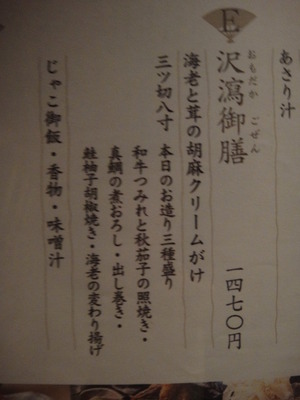 あさり汁
E
おもだか ごぜん
沢瀉御膳 一四七〇円
海老と茸の胡麻クリームがけ
三ツ切八寸 本日のお造り三種盛り
和牛つみれと秋茄子の照焼き・
真鯛の煮おろし・出し巻き・
鮭柚子胡椒焼き・海老の変わり揚げ
じゃこ御飯・香物・味噌汁